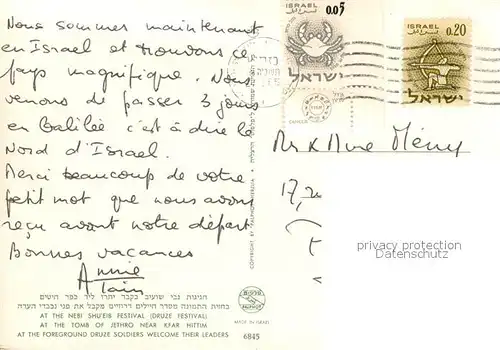 Nous sommes maintenant
en Israel et trouvons ce
pays magnifique. Nous
venons de passer 3 jours
en Galilée c'est à dire le
Nord d'Israel.
Merci beaucoup de votre
petit mot que nous avons
reçu avant notre départ
Bonnes vacances
Annie
Alain
חגיגות נבי שועיב בקבר יתרו ליד כפר חיטים
בחזית התמונה מסדר חיילים דרוזיים מקבל את פני נכבדי העדה
AT THE NEBI SHU'EIB FESTIVAL (DRUZE FESTIVAL)
AT THE TOMB OF JETHRO NEAR KFAR HITTIM
AT THE FOREGROUND DRUZE SOLDIERS WELCOME THEIR LEADERS
MADE IN ISRAEL
6845
COPYRIGHT BY PALPHOT
ISRAEL
0.05
ישראל
CANCER
ISRAEL
0.20
ישראל
Mr & Mme
17,
privacy protection
Datenschutz